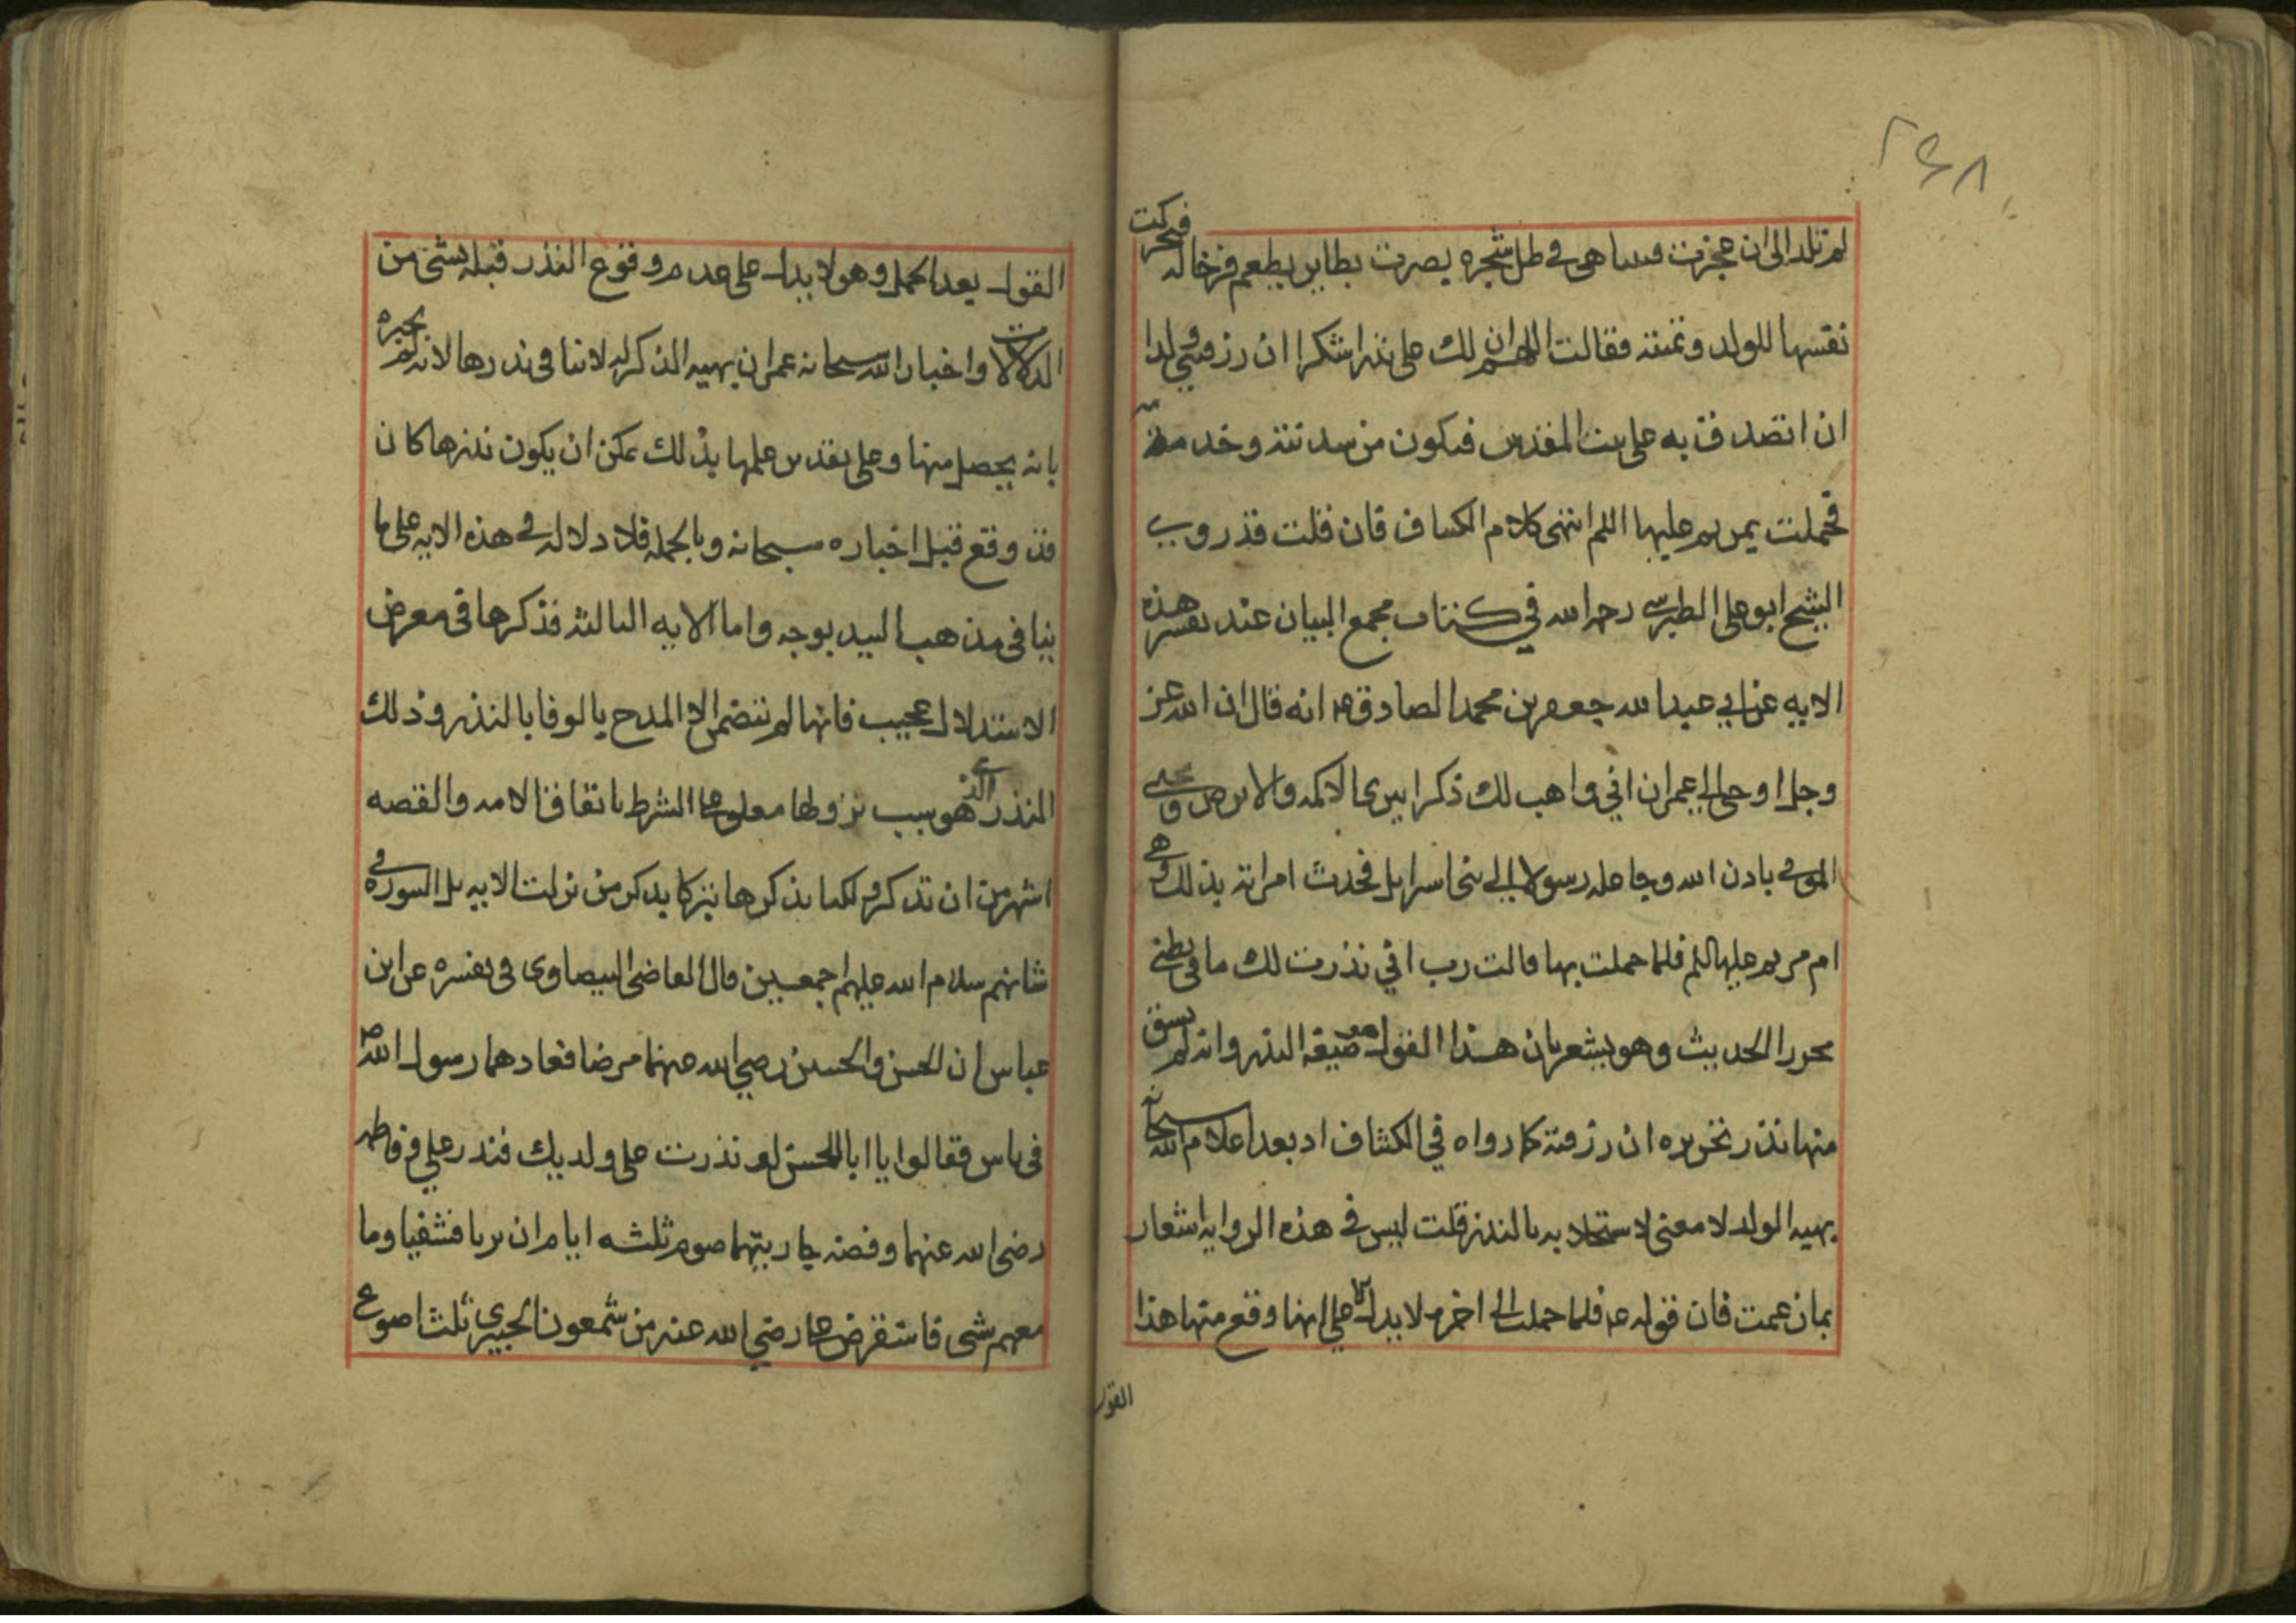 ۲۴۸
لم تلد الى ان عجزت فبينا هى فى ظل شجره بصرت بطاير يطعم فرخا له فتحركت
نفسها للولد وتمنته فقالت اللهم ان لك على نذرا شكرا ان رزقتنى ولدا
ان اتصدق به على بيت المقدس فيكون من سدنته وخدمته
فحملت بمريم عليها السلم انتهى كلام الكشاف فان قلت قد روى
الشيخ ابو على الطبرسى رحمه الله فى كتاب مجمع البيان عند تفسير هذه
الايه عن ابى عبد الله جعفر بن محمد الصادق ع انه قال ان الله عز
وجل اوحى الى عمران انى واهب لك ذكرا يبرى الاكمه والابرص ويحيى
الموتى باذن الله وجاعله رسولا الى بنى اسرايل فحدث امراته بذلك وهى
ام مريم عليها السلم فلما حملت بها قالت رب انى نذرت لك ما فى بطنى
محررا الحديث وهو يشعر بان هذا القول صيغه النذر وانه لم يسبق
منها نذر تحريره ان رزقته كما رواه فى الكشاف اذ بعد اعلام الله سبحانه
بهبه الولد لا معنى لاستجلابه بالنذر قلت ليس فى هذه الروايه اشعار
بما زعمت فان قوله ع فلما حملت الى اخره لا يدل الا على انها وقع منها هذا
القول
القول بعد الحمل وهو لا يدل على عدم وقوع النذر قبله بشى من
الدلالات واخبار الله سبحانه عمران بهبه الذكر له لا ينافى نذرها لانه لم يخبره
بانه يحصل منها وعلى تقدير علمها بذلك يمكن ان يكون نذرها كان
قد وقع قبل اخباره سبحانه وبالجمله فلا دلاله فى هذه الايه على ما
ينافى مذهب السيد بوجه واما الايه الثالثه فذكرها فى معرض
الاستدلال عجيب فانها لم تتضمن الا المدح بالوفا بالنذر وذلك
النذر الذى هو سبب نزولها معلوما الشرط باتفاق الامه والقصه
اشهر من ان تذكر ولكنا نذكرها تبركا بذكر من نزلت الايه بل السوره فى
شانهم سلام الله عليهم اجمعين قال القاضى البيضاوى فى تفسيره عن ابن
عباس ان الحسن والحسين رضى الله عنهما مرضا فعادهما رسول الله ص
فى ناس فقالوا يا ابا الحسن لو نذرت على ولديك فنذر على و فاطمه
رضى الله عنهما وفضه جاريتهما صوم ثلثه ايام ان بريا فشفيا وما
معهم شى فاستقرض على رضى الله عنه من شمعون الخيبرى ثلث اصوع